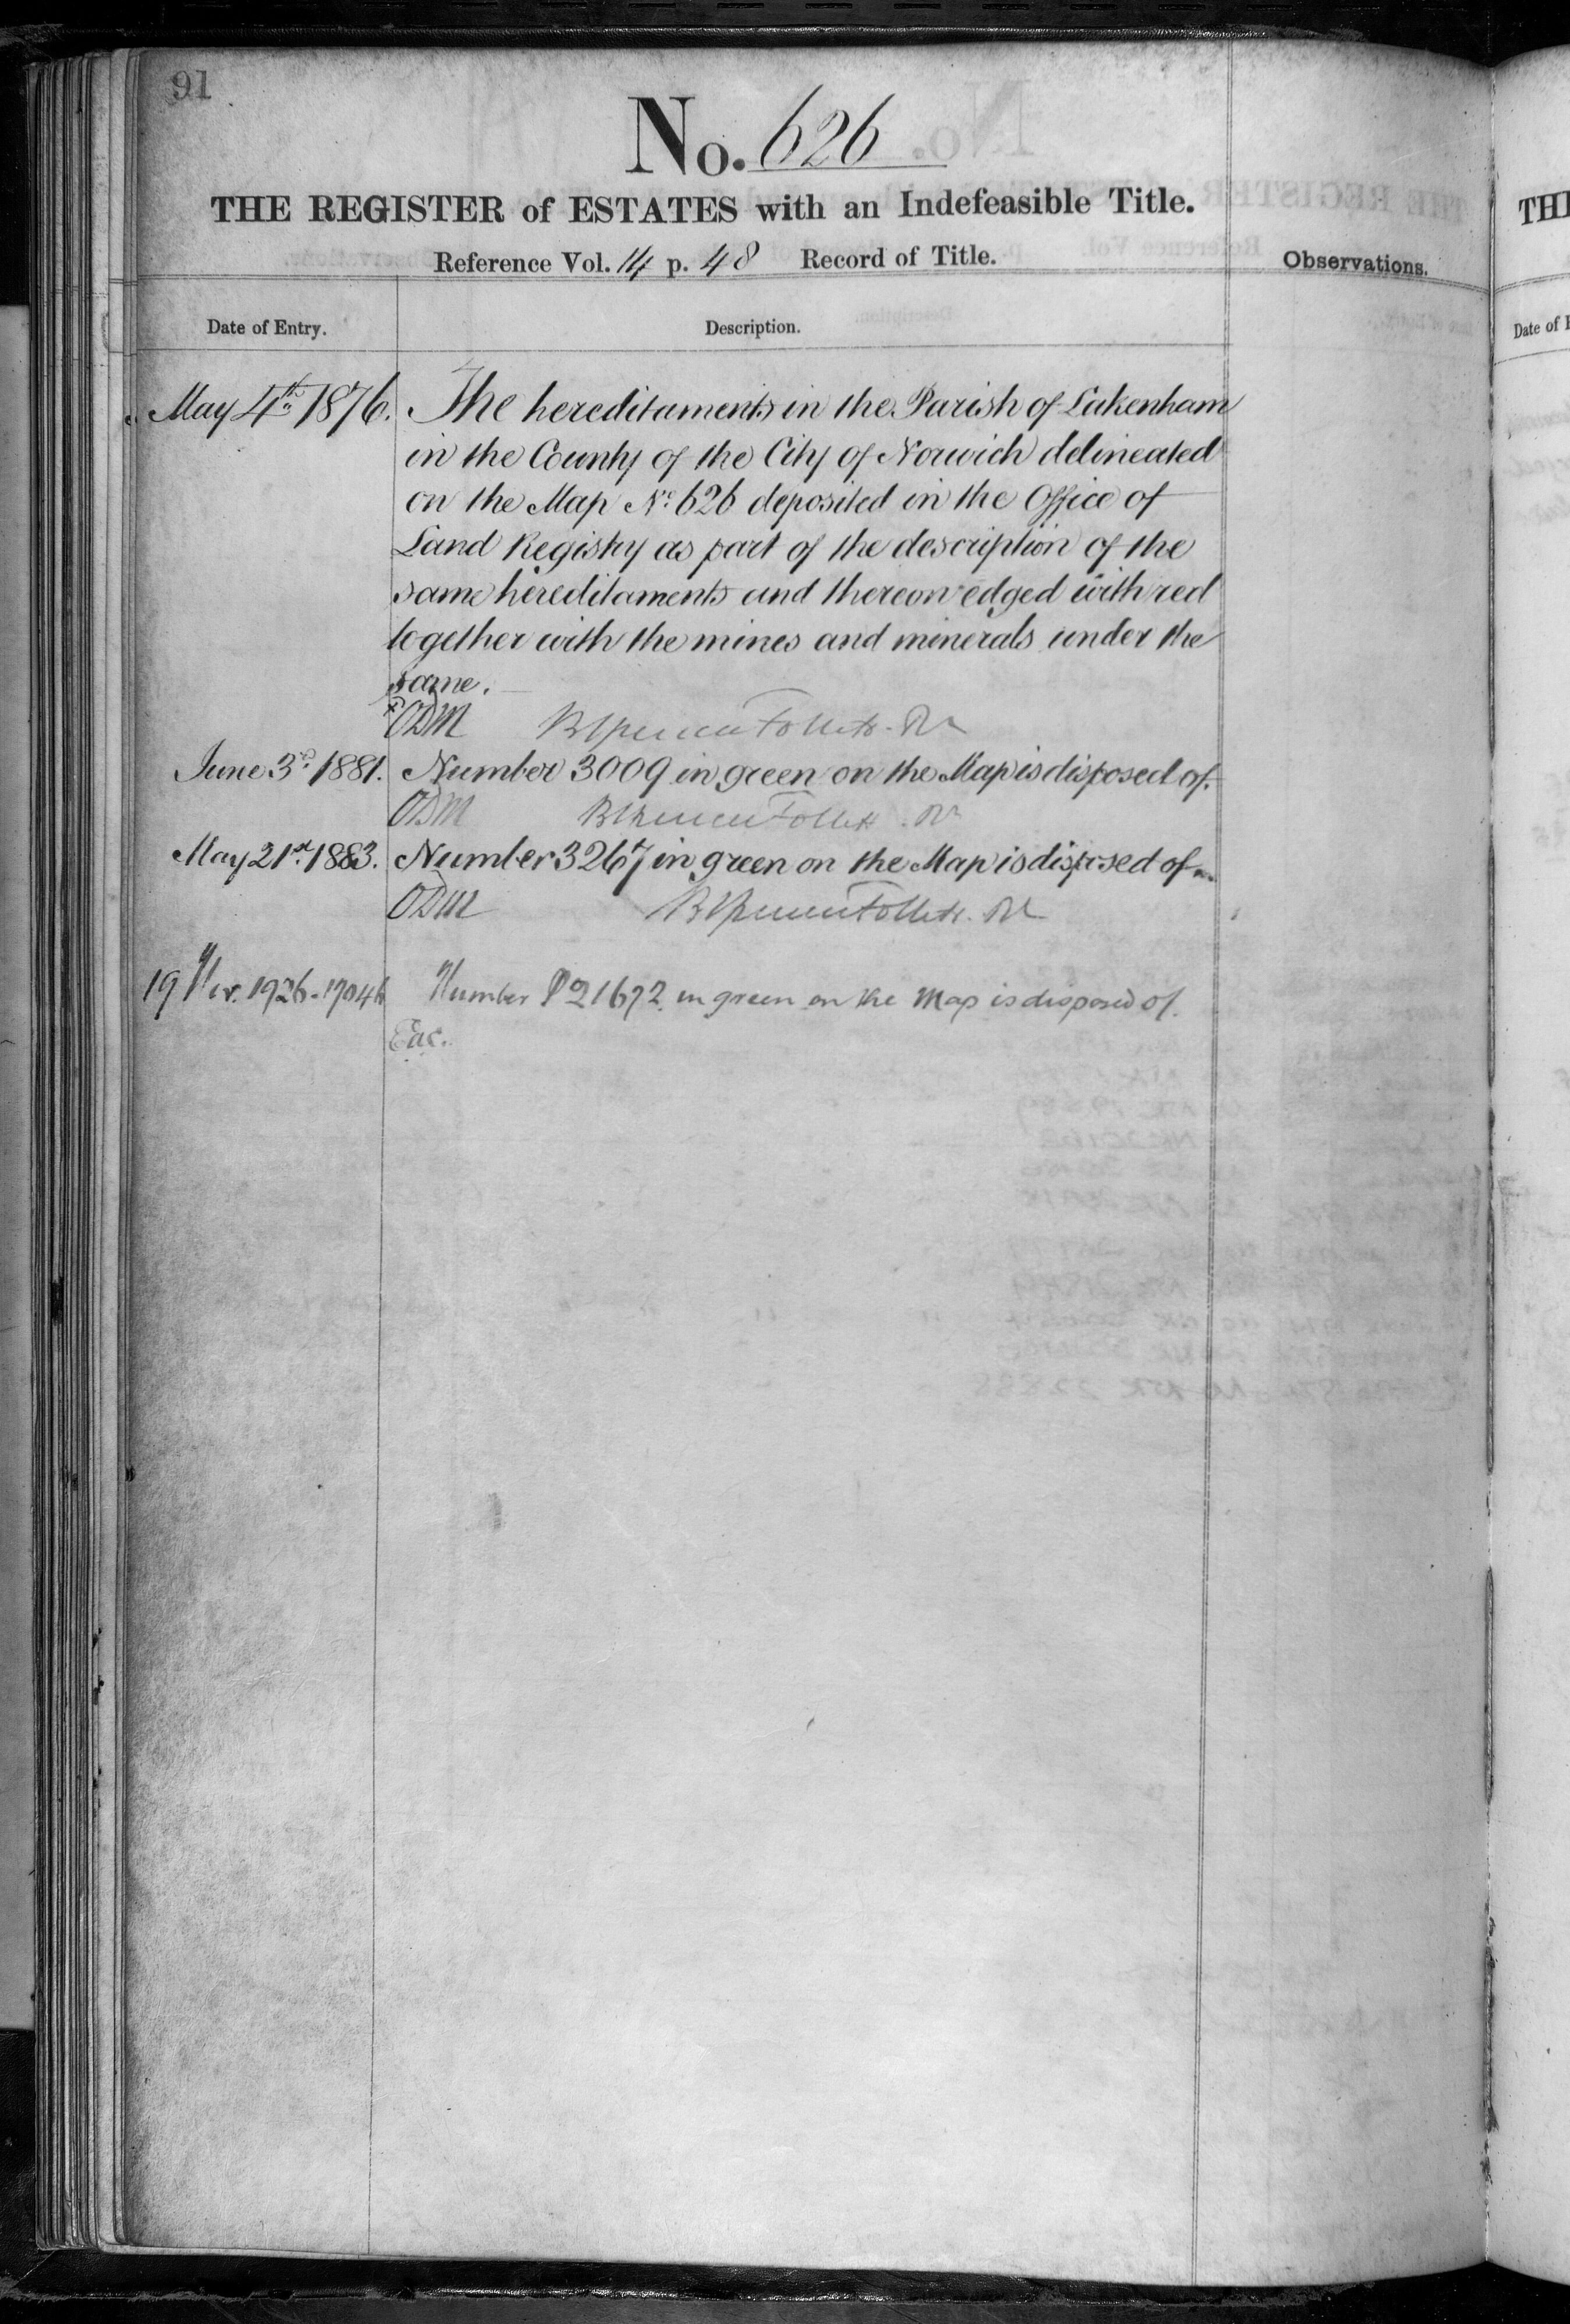 91
No. 626
THE REGISTER of ESTATES with an Indefeasible Title.
Reference Vol. 14 p. 48 Record of Title.
Observations.
Date of Entry.
Description.
May 4th 1876. The hereditaments in the Parish of Lakenham
in the County of the City of Norwich delineated
on the Map No 626 deposited in the Office of
Land Registry as part of the description of the
same hereditaments and thereon edged with red
together with the mines and minerals under the
same.
ODM Brent Spencer Follett. Rr
June 3d 1881. Number 3009 in green on the Map is disposed of.
ODM
May 21st 1883. Number 3267 in green on the Map is disposed of
ODM
19 Nov. 1926 - 17046 Number P21672 in green on the Map is disposed of.
Eac.
THE
Date of